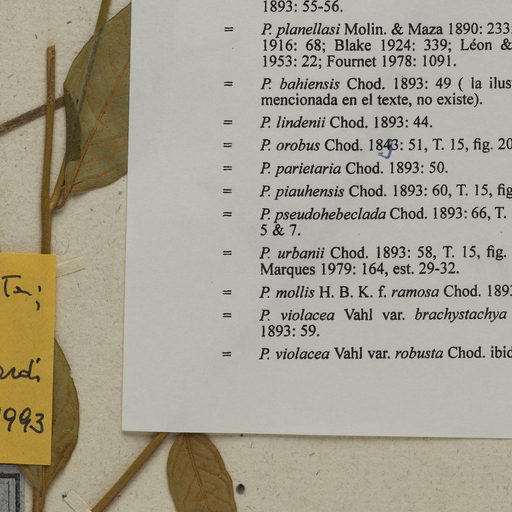 1893: 55-56.
= P. planellasi Molin. & Maza 1890: 233
1916: 68; Blake 1924: 339; Léon &
1953: 22; Fournet 1978: 1091.
= P. bahiensis Chod. 1893: 49 ( la ilus
mencionada en el texte, no existe).
= P. lindenii Chod. 1893: 44.
= P. orobus Chod. 1893: 51, T. 15, fig. 20
= P. parietaria Chod. 1893: 50.
= P. piauhensis Chod. 1893: 60, T. 15, fig
= P. pseudohebeclada Chod. 1893: 66, T.
5 & 7.
= P. urbanii Chod. 1893: 58, T. 15, fig.
Marques 1979: 164, est. 29-32.
= P. mollis H. B. K. f. ramosa Chod. 189
= P. violacea Vahl var. brachystachya
1893: 59.
= P. violacea Vahl var. robusta Chod. ibid
1993